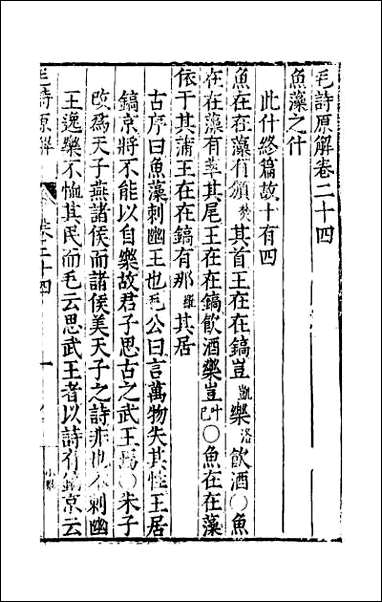 毛詩原解卷二十四
魚藻之什
此什終篇故十有四
魚在在藻有頒焚其首王在在鎬豈凱樂洛飲酒○魚
在在藻有莘其尾王在在鎬飲酒樂豈叶巳○魚在在藻
依于其蒲王在在鎬有那羅其居
古序曰魚藻刺幽王也毛公曰言萬物失其性王居
鎬京將不能以自樂故君子思古之武王焉○朱子
改為天子燕諸侯而諸侯美天子之詩非也不刺幽
王逸樂不恤其民而毛云思武王者以詩有鎬京云
毛詩原解 卷二十四 一